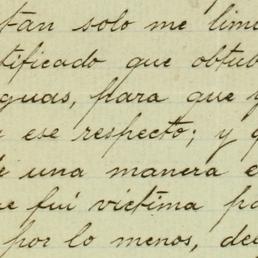 tan solo me lim
tificado que obtu
guas, para que
ese respecto; y
de una manera e
ue fuí víctima po
por lo menos, de